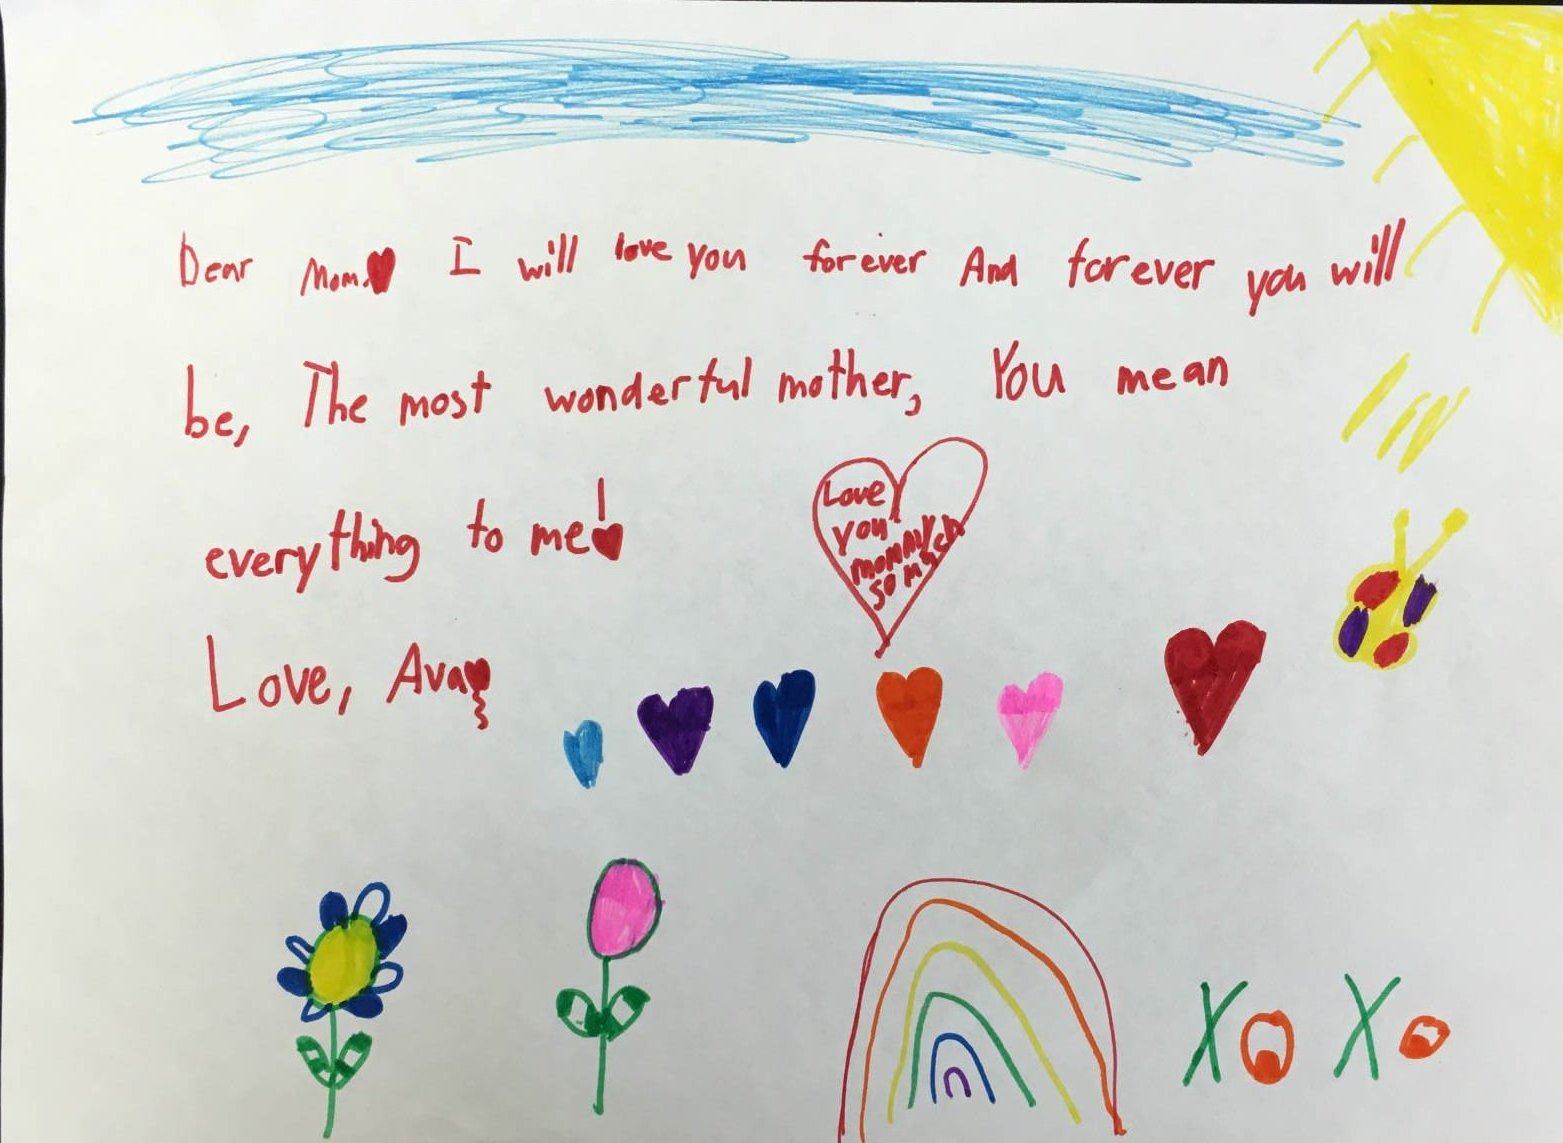 Dear Mom. I will love you forever And forever you will
be, The most wonderful mother, You mean
everything to me!
Love
you
mommy
so much
Love, Ava
XOXO